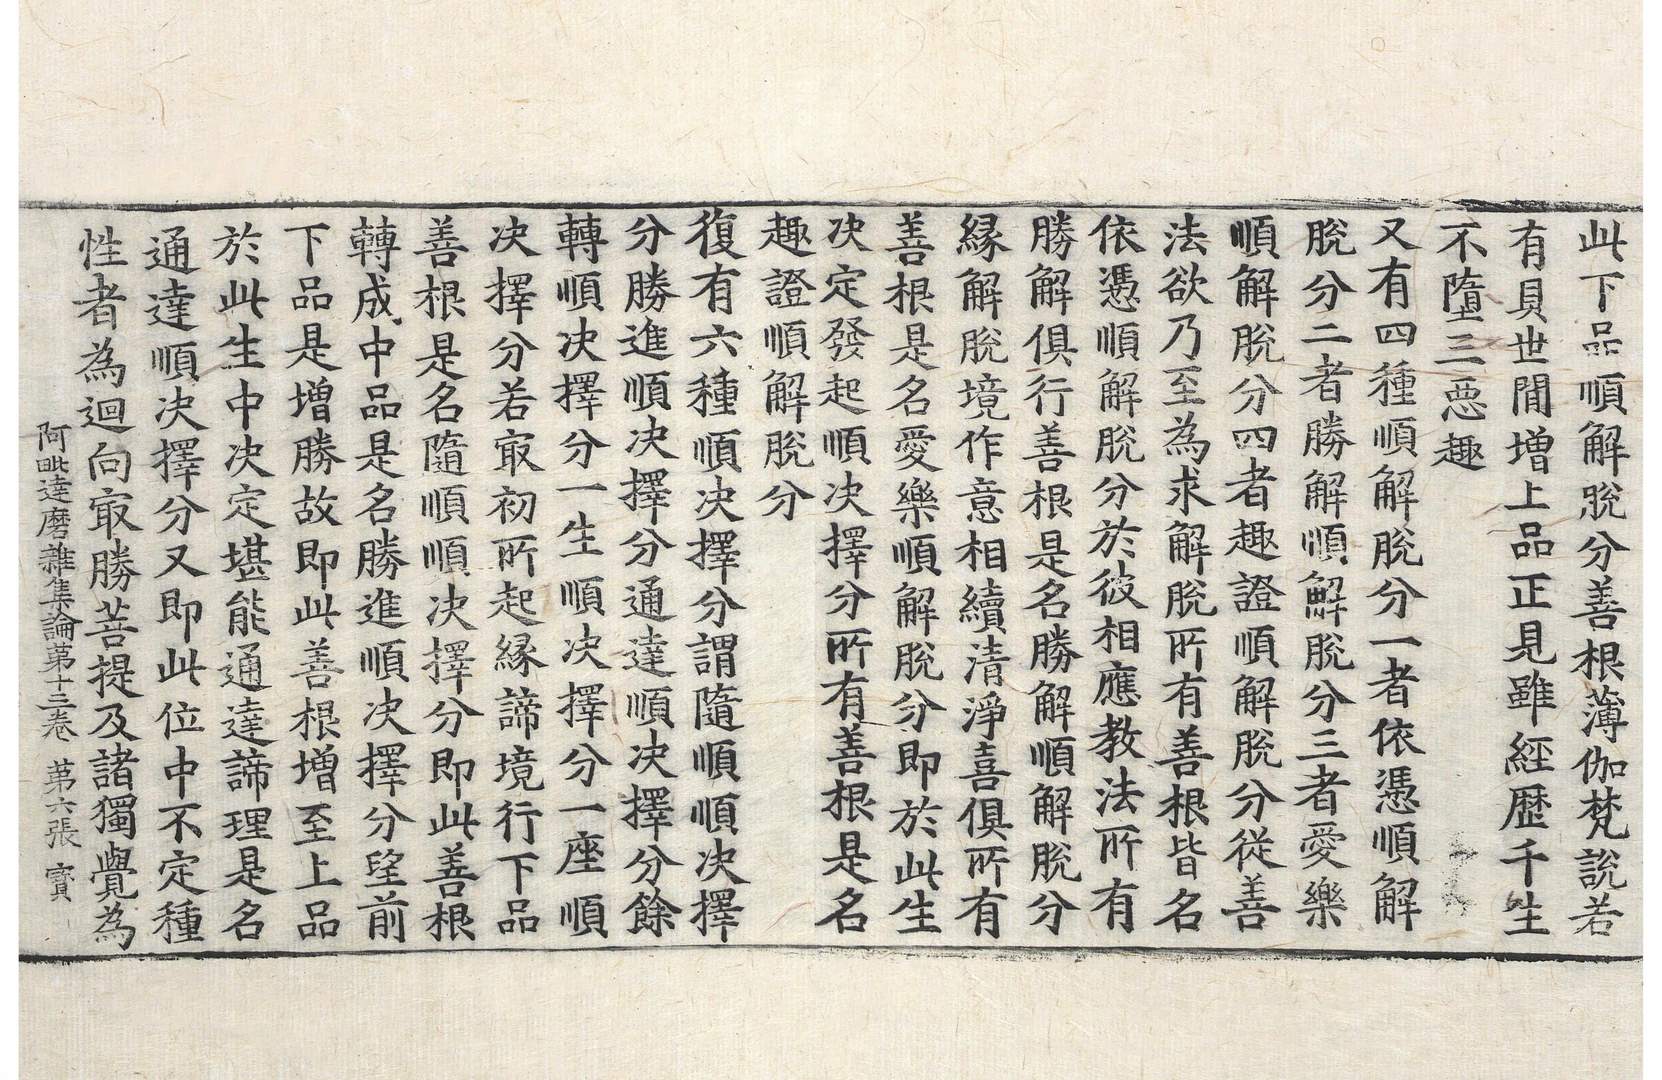 此下品順解脫分善根薄伽梵說若
有具世間增上品正見雖經歷千生
不墮三惡趣
又有四種順解脫分一者依憑順解
脫分二者勝解順解脫分三者愛樂
順解脫分四者趣證順解脫分從善
法欲乃至為求解脫所有善根皆名
依憑順解脫分於彼相應教法所有
勝解俱行善根是名勝解順解脫分
緣解脫境作意相續清淨喜俱所有
善根是名愛樂順解脫分即於此生
决定發起順决擇分所有善根是名
趣證順解脫分
復有六種順决擇分謂隨順順决擇
分勝進順决擇分通達順决擇分餘
轉順决擇分一生順决擇分一座順
决擇分若㝡初所起緣諦境行下品
善根是名隨順順决擇分即此善根
轉成中品是名勝進順决擇分望前
下品是增勝故即此善根增至上品
於此生中决定堪能通達諦理是名
通達順决擇分又即此位中不定種
性者為迴向㝡勝菩提及諸獨覺為
阿毗達磨雜集論第十三卷 第六張 寳